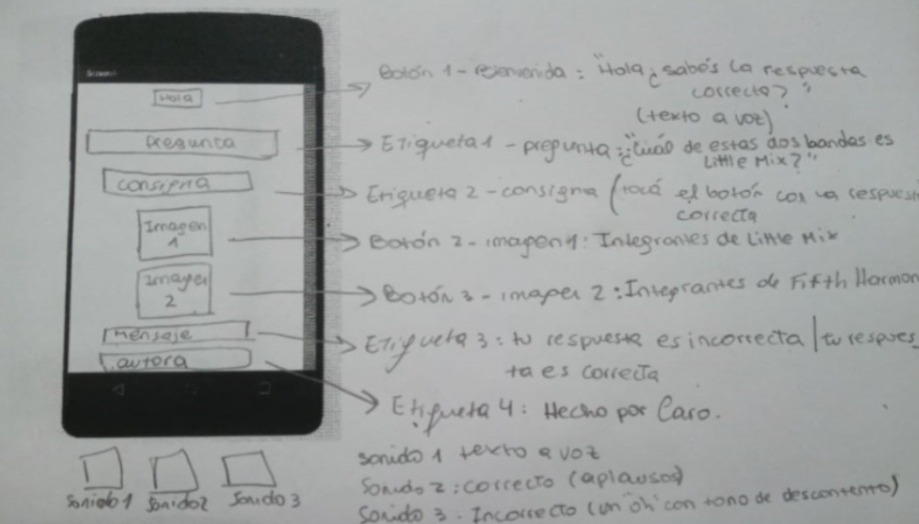 Screen1
Hola
Pregunta
consigna
Imagen
1
Imagen
2
Mensaje
autora
Sonido 1 Sonido2 Sonido 3
Botón 1 - Bienvenida: "Hola ¿sabés la respuesta
correcta?"
(texto a voz)
Etiqueta 1 - pregunta: "¿Cuál de estas dos bandas es
Little Mix?"
Etiqueta 2 - consigna (tocá el botón con la respuest
correcta
Botón 2 - imagen 1: Integrantes de Little Mix
Botón 3 - imagen 2: Integrantes de Fifth Harmon
Etiqueta 3: tu respuesta es incorrecta / tu respues
ta es correcta
Etiqueta 4: Hecho por Caro.
sonido 1 texto a voz
Sonido 2: correcto (aplausos)
Sonido 3 - Incorrecto (un "oh" con tono de descontento)